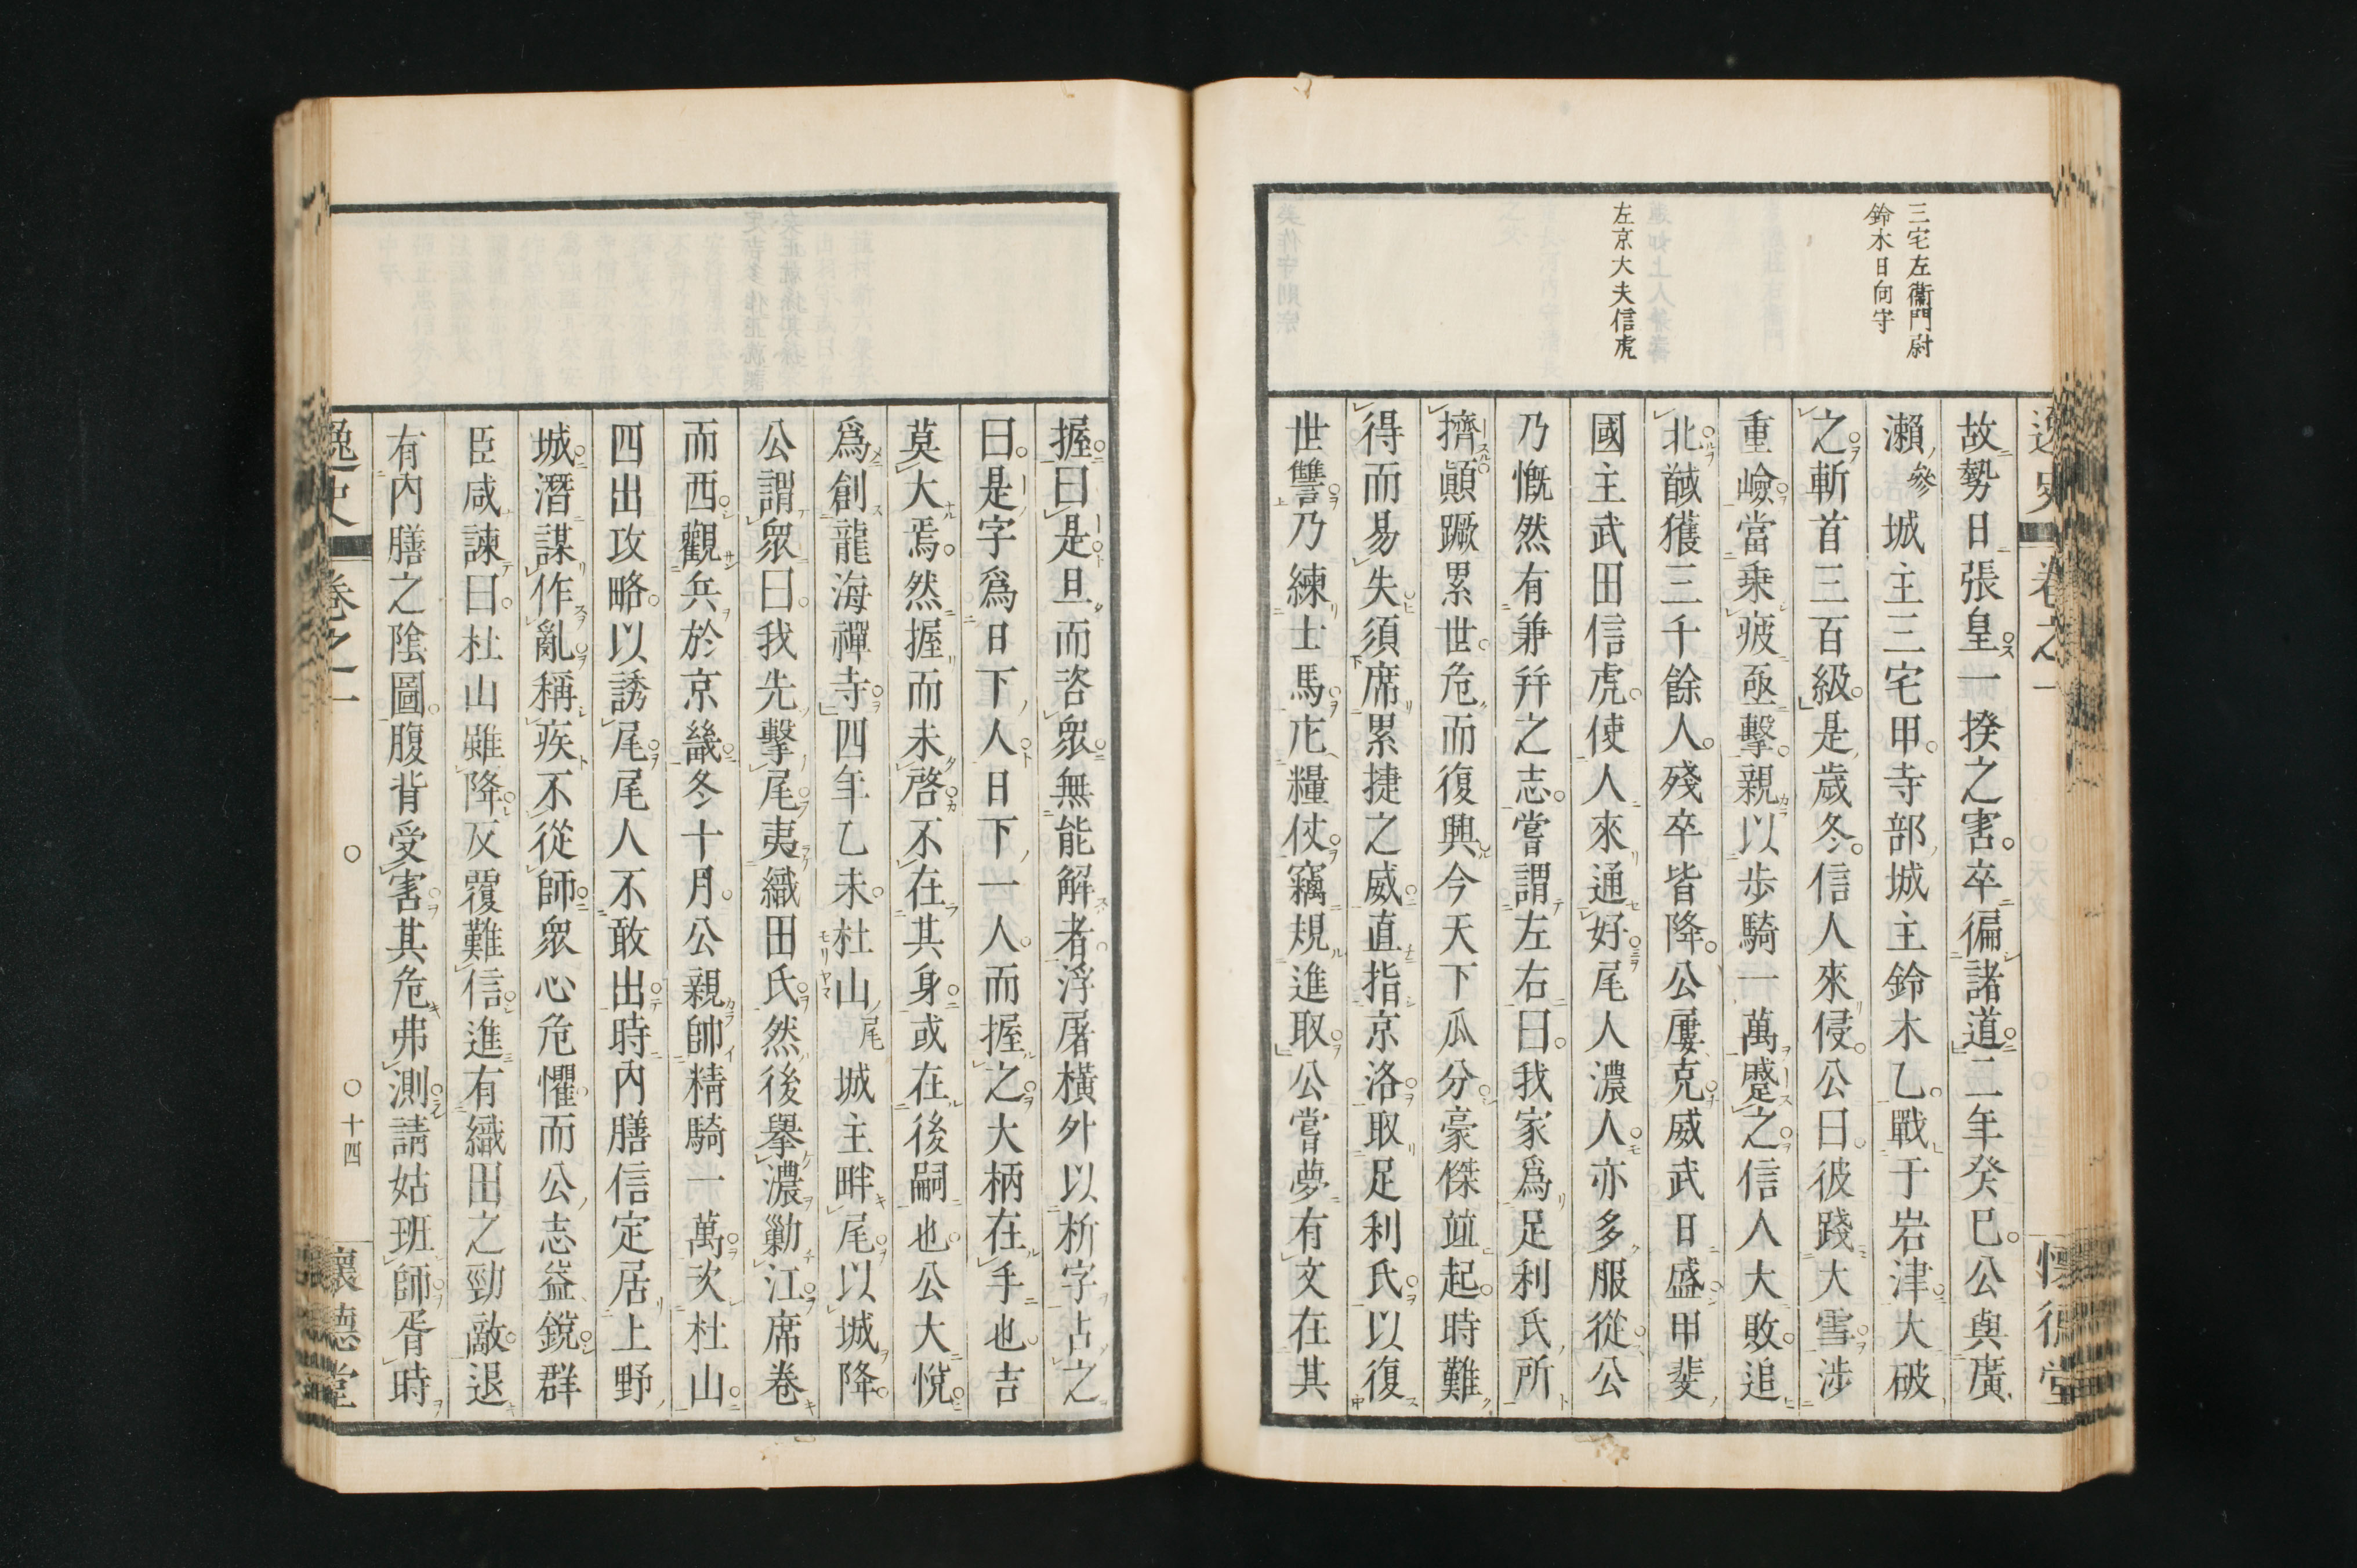 三宅左衞門尉
鈴木日向守
左京大夫信虎
故勢日張皇一揆之害卒徧諸道二年癸巳公與廣
瀨參城主三宅甲寺部城主鈴木乙戰于岩津大破
之斬首三百級是歲冬信人來侵公曰彼踐大雪涉
重嶮當乗疲亟擊親以歩騎一萬蹙之信人大敗追
北馘獲三千餘人殘卒皆降公屢克威武日盛甲斐
國主武田信虎使人來通好尾人濃人亦多服從公
乃慨然有兼幷之志嘗謂左右曰我家爲足利氏所
擠顚蹶累世危而復興今天下瓜分豪傑竝起時難
得而易失須席累捷之威直指京洛取足利氏以復
世讐乃練士馬庀糧仗竊規進取公嘗夢有文在其
握曰是旦而咨衆無能解者浮屠橫外以析字占之
曰是字爲日下人日下一人而握之大柄在手也吉
莫大焉然握而未啓不在其身或在後嗣也公大悅
爲創龍海禪寺四年乙未杜山尾城主畔尾以城降
公謂衆曰我先擊尾夷織田氏然後擧濃勦江席卷
而西觀兵於京畿冬十月公親帥精騎一萬次杜山
四出攻略以誘尾尾人不敢出時內膳信定居上野
城潛謀作亂稱疾不從師衆心危懼而公志益鋭群
臣咸諫曰杜山雖降反覆難信進有織田之勁敵退
有內膳之陰圖腹背受害其危弗測請姑班師胥時
逸史
卷之一
十四
懷德堂